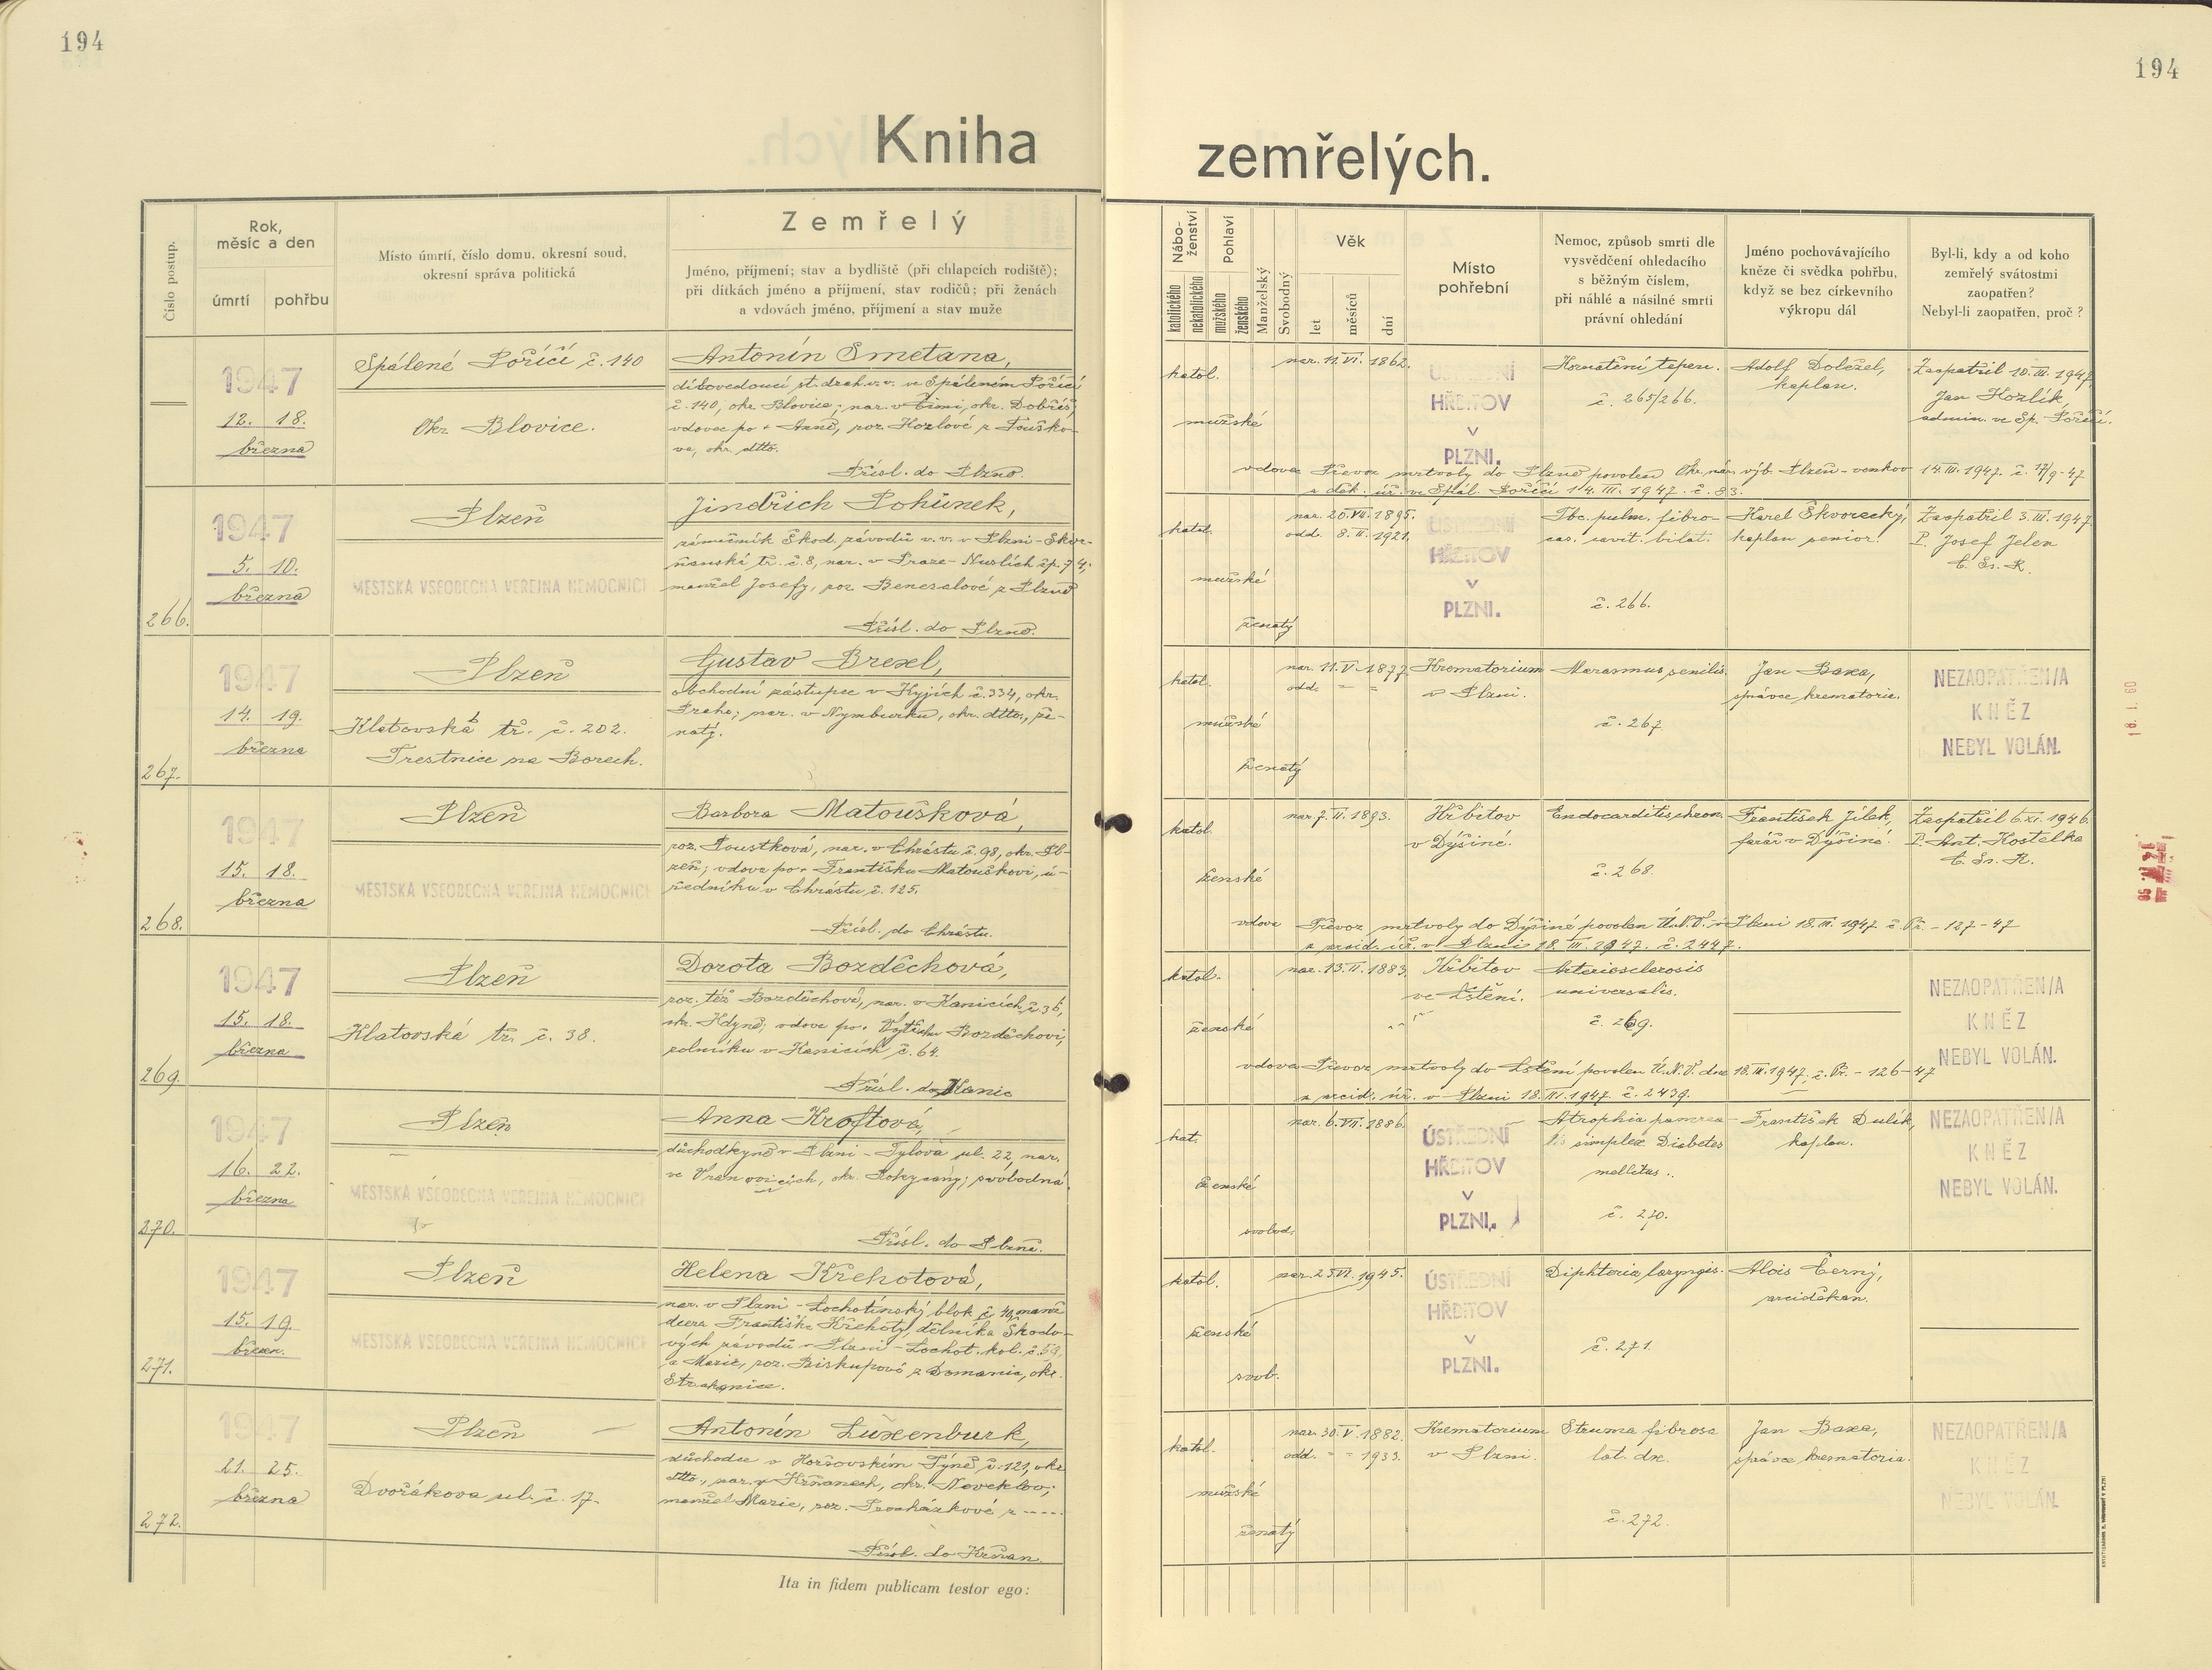 194
194
Kniha zemřelých.
Číslo postup.
Rok, měsíc a den
úmrtí
pohřbu
Místo úmrtí, číslo domu, okresní soud,
okresní správa politická
Zemřelý
Jméno, příjmení; stav a bydliště (při chlapcích rodiště);
při dítkách jméno a příjmení, stav rodičů; při ženách
a vdovách jméno, příjmení a stav muže
Nábo-
ženství
katolického
nekatolického
Pohlaví
mužského
ženského
Manželský
Svobodný
Věk
let
měsíců
dní
Místo
pohřební
Nemoc, způsob smrti dle
vysvědčení ohledacího
s běžným číslem,
při náhlé a násilné smrti
právní ohledání
Jméno pochovávajícího
kněze či svědka pohřbu,
když se bez církevního
výkropu dál
Byl-li, kdy a od koho
zemřelý svátostmi
zaopatřen?
Nebyl-li zaopatřen, proč?
1947
12. 18.
března
Spálené Poříčí č. 140
Okr. Blovice.
Antonín Smetana,
dílovedoucí st. drah v. v. ve Spáleném Poříčí
č. 140, okr. Blovice; nar. v Čimi, okr. Dobříš,
vdovec po + Anně, roz. Kozlové z Touško-
va, okr. dtto.
Přísl. do Plzně.
katol.
mužské
vdovec
nar. 11. VI. 1862.
ÚSTŘEDNÍ
HŘBITOV
V
PLZNI.
Kornatění tepen.
č. 265/266.
Adolf Doležel,
kaplan.
Zaopatřil 10. III. 1947
Jan Hozlík,
admin. ve Sp. Poříčí.
Převoz mrtvoly do Plzně povolen Okr. nár. výb. Plzeň-venkov 14. III. 1947. č. 17/9-47
a děk. úř. ve Spál. Poříčí 14. III. 1947. č. 83.
266.
1947
5. 10.
března
Plzeň
MĚSTSKÁ VŠEOBECNÁ VEŘEJNÁ NEMOCNICE
Jindřich Pohůnek,
zámečník Škod. závodů v. v. v Plzni-Skvr-
ňanská tř. č. 8, nar. v Praze-Nuslích čp. 74,
manžel Josefy, roz. Beneralové z Plzně
Přísl. do Plzně.
katol.
mužské
ženatý
nar. 20. VII. 1895.
odd. 8. II. 1921.
ÚSTŘEDNÍ
HŘBITOV
V
PLZNI.
Tbc. pulm. fibro-
cas. cavit. bilat.
č. 266.
Karel Škvorecký,
kaplan senior.
Zaopatřil 3. III. 1947
P. Josef Jelen
C. Ss. R.
267.
1947
14. 19.
března
Plzeň
Klatovská tř. č. 202.
Trestnice na Borech.
Gustav Brexl,
obchodní zástupce v Kyjích č. 334, okr.
Praha; nar. v Nymburku, okr. dtto., že-
natý.
katol.
mužské
ženatý
nar. 11. V. 1877.
odd. = =
Krematorium
v Plzni.
Marasmus senilis.
č. 267
Jan Baxa,
správce krematoria.
NEZAOPATŘEN/A
KNĚZ
NEBYL VOLÁN.
268.
1947
15. 18.
března
Plzeň
MĚSTSKÁ VŠEOBECNÁ VEŘEJNÁ NEMOCNICE
Barbora Matoušková,
roz. Poustková, nar. v Chrástu č. 98, okr. Pl-
zeň; vdova po + Františku Matouškovi, ú-
ředníku v Chrástu č. 125.
Přísl. do Chrástu.
katol.
ženské
vdova
nar. 7. II. 1893.
Hřbitov
v Dýšině.
Endocarditis chron.
č. 268.
František Jílek,
farář v Dýšině.
Zaopatřil 6. XI. 1946.
P. Ant. Kostelka
C. Ss. R.
Převoz mrtvoly do Dýšiné povolen Ú.N.V. v Plzni 18. III. 1947 č. Př. - 127-47
a arcid. úř. v Plzni 18. III. 1947. č. 2447.
269.
1947
15. 18.
března
Plzeň
Klatovská tř. č. 38.
Dorota Bozděchová,
roz. též Bozděchová, nar. v Kanicích č. 36,
okr. Kdyně; vdova po + Vojtěchu Bozděchovi,
rolníku v Kanicích č. 64.
Přísl. do Kanic
katol.
ženské
vdova
nar. 13. II. 1883.
Hřbitov
ve Lštění.
Arteriosclerosis
universalis.
č. 269.
NEZAOPATŘEN/A
KNĚZ
NEBYL VOLÁN.
Převoz mrtvoly do Lštění povolen Ú.N.V. dne 18. III. 1947. č. Př. - 126-47
a arcid. úř. v Plzni 18. III. 1947. č. 2439.
270.
1947
16. 22.
března
Plzeň
MĚSTSKÁ VŠEOBECNÁ VEŘEJNÁ NEMOCNICE
Anna Kroftová,
důchodkyně v Plzni - Tylova ul. 22, nar.
ve Vranovicích, okr. Rokycany; svobodná.
Přísl. do Plzně.
kat.
ženské
svobod.
nar. 6. VII. 1886.
ÚSTŘEDNÍ
HŘBITOV
V
PLZNI.
Atrophia pancrea-
tis simplex Diabetes
mellitus.
č. 270.
František Dulík,
kaplan.
NEZAOPATŘEN/A
KNĚZ
NEBYL VOLÁN.
271.
1947
15. 19.
březen.
Plzeň
MĚSTSKÁ VŠEOBECNÁ VEŘEJNÁ NEMOCNICE
Helena Křehotová,
nar. v Plzni - Lochotínský blok č. 40, manž.
dcera Františka Křehoty, dělníka Škodo-
vých závodů v Plzni - Lochot. kol. č. 59,
a Marie, roz. Biskupové z Domanic, okr.
Strakonice.
katol.
ženské
svob.
nar. 25. VI. 1945.
ÚSTŘEDNÍ
HŘBITOV
V
PLZNI.
Diphteria laryngis.
č. 271.
Alois Černý,
arciděkan.
272.
1947
21. 25.
března
Plzeň
Dvořákova ul. č. 17.
Antonín Luxenburk,
důchodce v Horšovském Týně č. 121, okr.
dtto., nar. v Křňanech, okr. Neveklov;
manžel Marie, roz. Procházkové z -----
Přísl. do Křňan
katol.
mužské
ženatý
nar. 30. V. 1882.
odd. = = 1933.
Krematorium
v Plzni.
Struma fibrosa
lat. dx.
č. 272.
Jan Baxa,
správce krematoria.
NEZAOPATŘEN/A
KNĚZ
NEBYL VOLÁN.
Ita in fidem publicam testor ego: